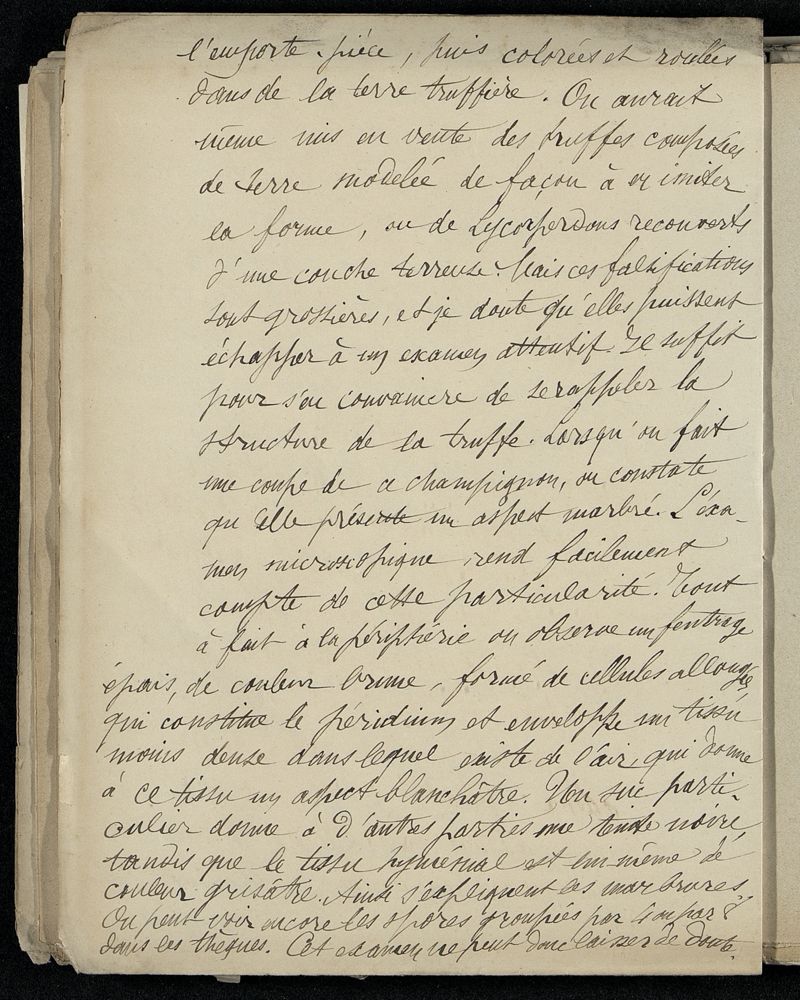 l'emporte-pièce, puis colorées et roulées
dans de la terre truffière. On aurait
même mis en vente des truffes composées
de terre modelée de façon à en imiter
la forme, ou de Lycoperdons recouverts
d'une couche terreuse. Mais ces falsifications
sont grossières, et je doute qu'elles puissent
échapper à un examen attentif. Il suffit
pour s'en convaincre de se rappeler la
structure de la truffe. Lorsqu'on fait
une coupe de ce champignon, on constate
qu'elle présente un aspect marbré. L'exa-
men microscopique rend facilement
compte de cette particularité. Tout
à fait à la périphérie on observe un feutrage
épais, de couleur brune, formé de cellules allongées
qui constitue le péridium et enveloppe un tissu
moins dense dans lequel existe de l'air, qui donne
à ce tissu un aspect blanchâtre. Un suc parti-
culier donne à d'autres parties une teinte noire,
tandis que le tissu hyménial est lui même de
couleur grisâtre. Ainsi s'expliquent les marbrures.
On peut voir encore les spores groupées par 4 ou par 8
dans les thèques. Cet examen ne peut donc laisser de doute.